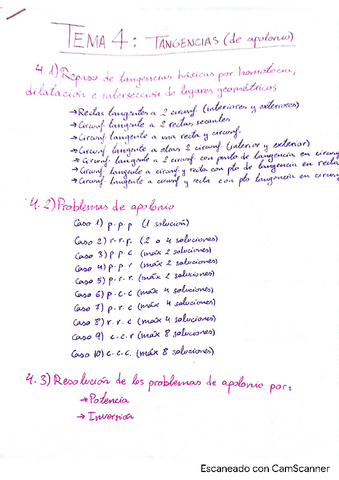 TEMA 4: TANGENCIAS (de apolonio)
4.1) Repaso de tangencias básicas por homotecia,
dilatación e intersección de lugares geométricos
→ Rectas tangentes a 2 circunf. (interiores y exteriores)
→ Circunf. tangente a 2 rectas secantes
→ Circunf. tangente a una recta y circunf.
→ Circunf. tangente a otras 2 circunf. (interior y exterior)
→ Circunf. tangente a 2 circunf. con punto de tangencia en circunf
→ Circunf. tangente a circunf. y recta con pto de tangencia en recta
→ Circunf. tangente a circunf y recta con pto tangencia en circunf
4.2) Problemas de apolonio
Caso 1) p.p.p (1 solución)
Caso 2) r.r.r. (2 o 4 soluciones)
Caso 3) p p c (máx 2 soluciones)
Caso 4) p.p r (máx 2 soluciones)
Caso 5) p.r.r. (máx 2 soluciones)
Caso 6) p.c.c (máx 4 soluciones)
Caso 7) p.r.c (máx 4 soluciones)
Caso 8) r.r.c (máx 4 soluciones)
Caso 9) c.c.r (máx 8 soluciones)
Caso 10) c.c.c. (máx 8 soluciones)
4.3) Resolución de los problemas de apolonio por:
→ Potencia
→ Inversión
Escaneado con CamScanner